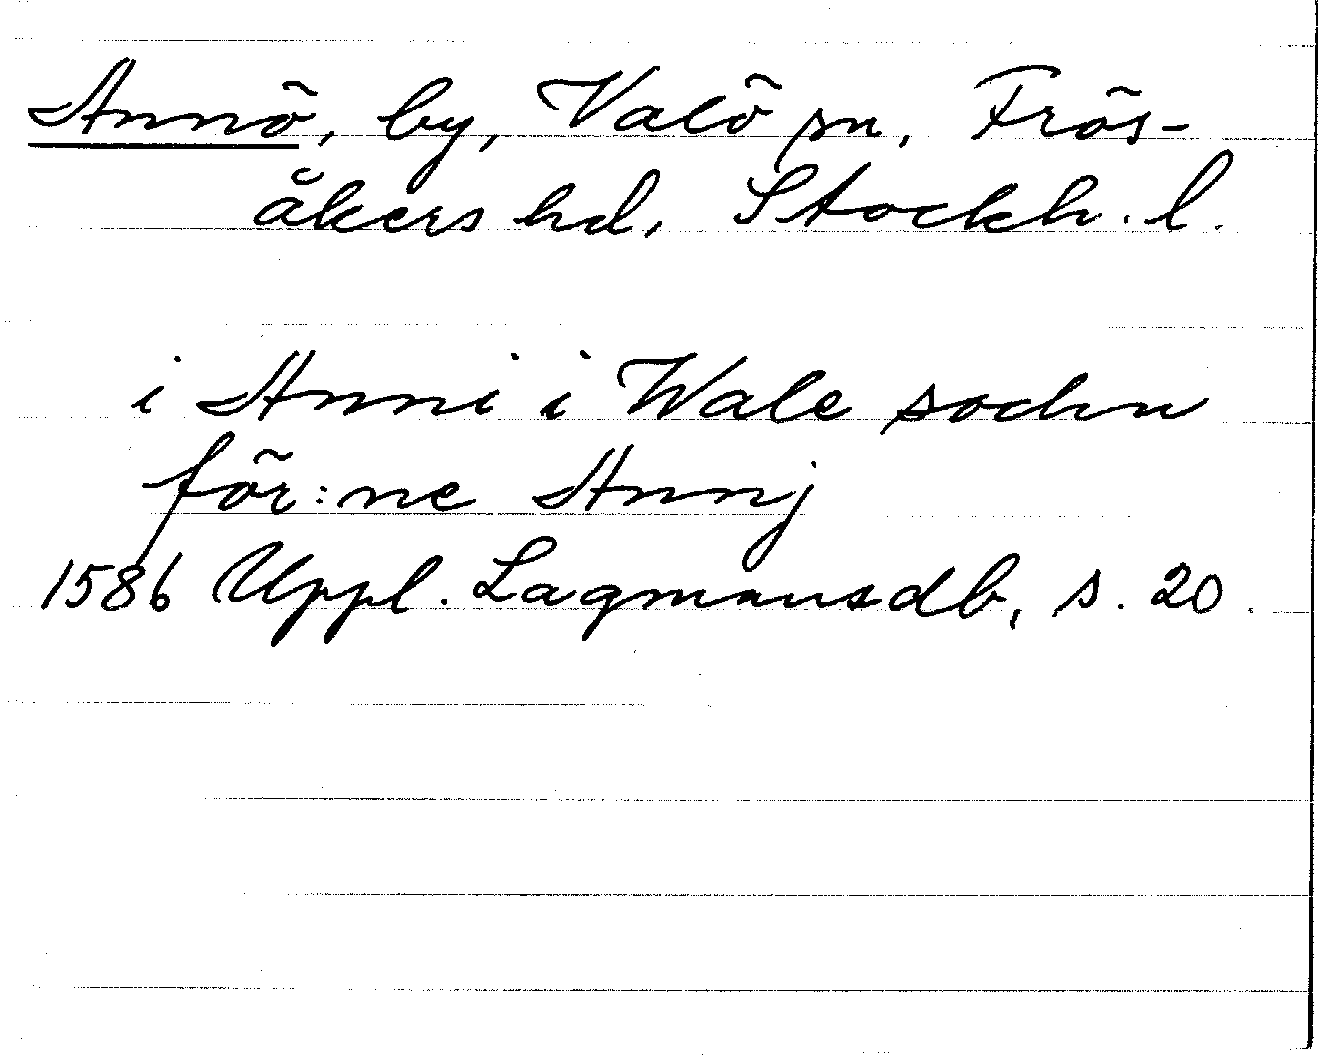 Annö, by, Valö sn, Frös-
åkers hd, Stockh. l.
i Anni i Wale sochn
för:ne Annj
1586 Uppl. Lagmansdb, s. 20.